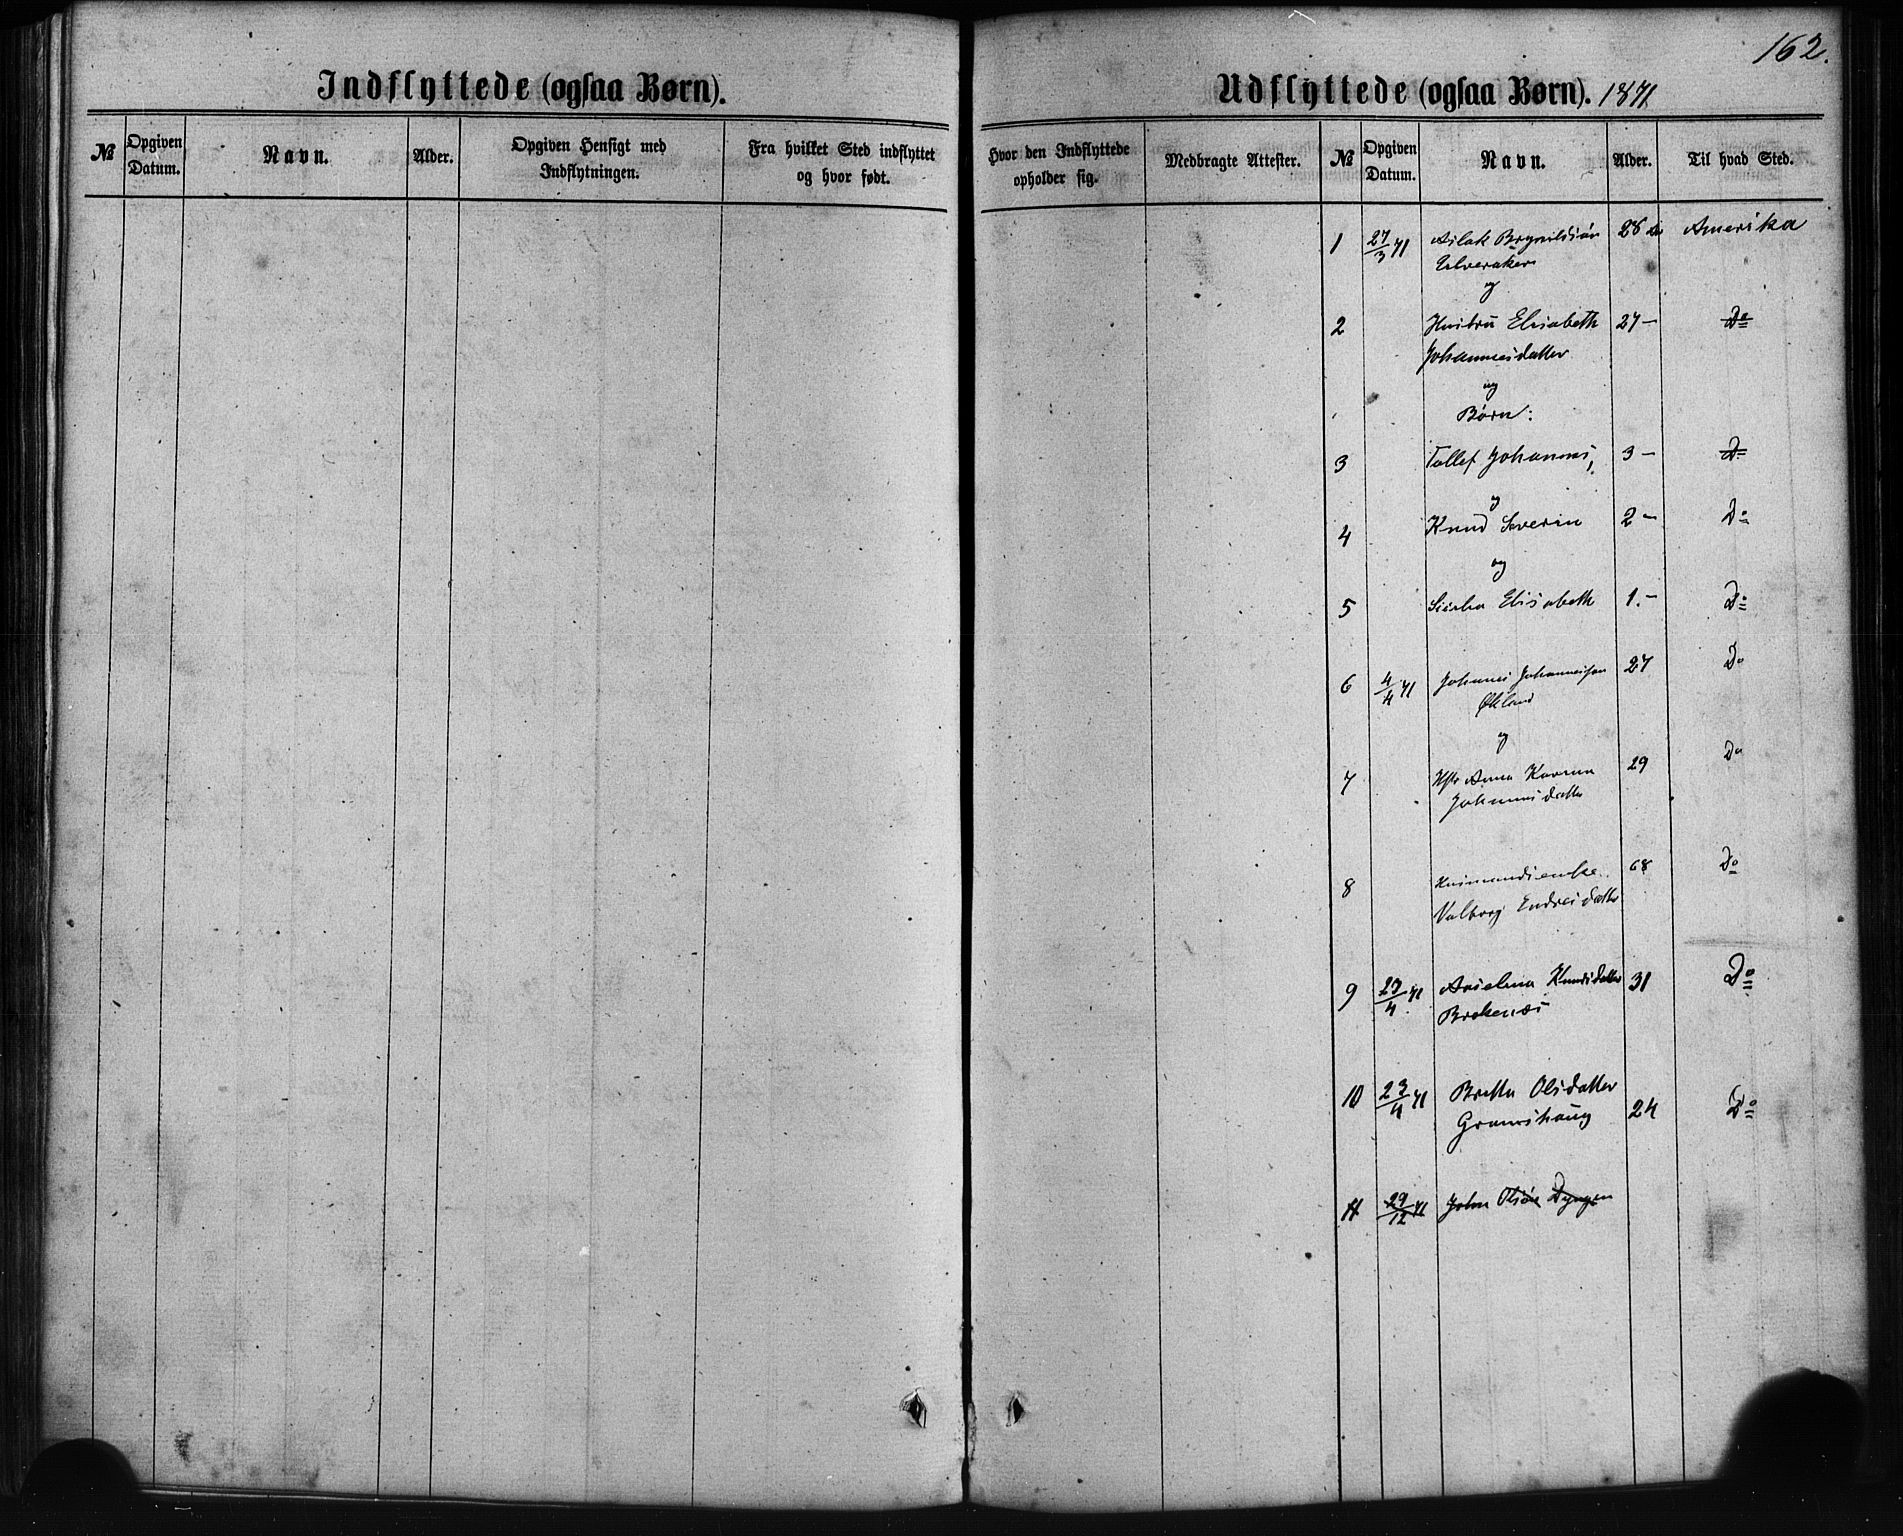 162.
Indflyttede (ogsaa Børn).
№ Opgiven Datum. Navn. Alder. Opgiven Hensigt med Indflytningen. Fra hvilket Sted indflyttet og hvor født.
Udflyttede (ogsaa Børn). 1871
Hvor den Indflyttede opholder sig. Medbragte Attester. № Opgiven Datum. Navn. Alder. Til hvad Sted.
1 27/3 71 Aslak Brynildsøn 28 Amerika
Ulveraker
og
2 Hustru Elisabeth 27 – Do
Johannesdatter
og
Børn:
3 Tollef Johannes, 3 – Do
og
4 Knud Severin 2 – Do
og
5 Elisabeth 1. – Do
6 4/4 71 Johannes Johannessen 27 Do
Økland
og
7 Anna Karina 29 Do
Johannesdatter
8 68 Do
Valborg Endresdatter
9 23/4 71 Knudsdatter 31 Do
Brekenæs
10 23/4 71 Britta Olsdatter
Gramshaug 24 Do
11 29/12 71 John Olsøn Dyngen